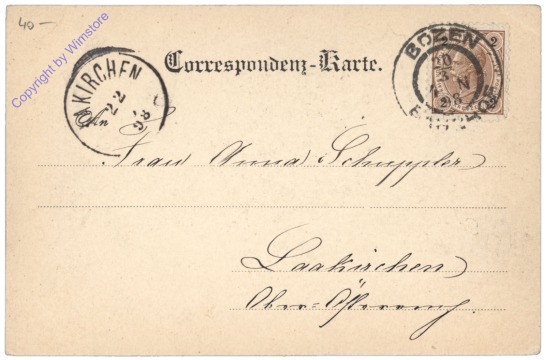 40-
Copyright by Wimstore
Correspondenz-Karte.
BOZEN
BAHNHOF
2
AKIRCHEN
22
98
An
Frau Anna Schuppler
Laakirchen
Ober-Österreich